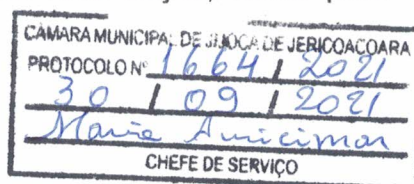 CÂMARA MUNICIPAL DE JIJOCA DE JERICOACOARA
PROTOCOLO Nº 1664 / 2021
30 / 09 / 2021
Maria
CHEFE DE SERVIÇO